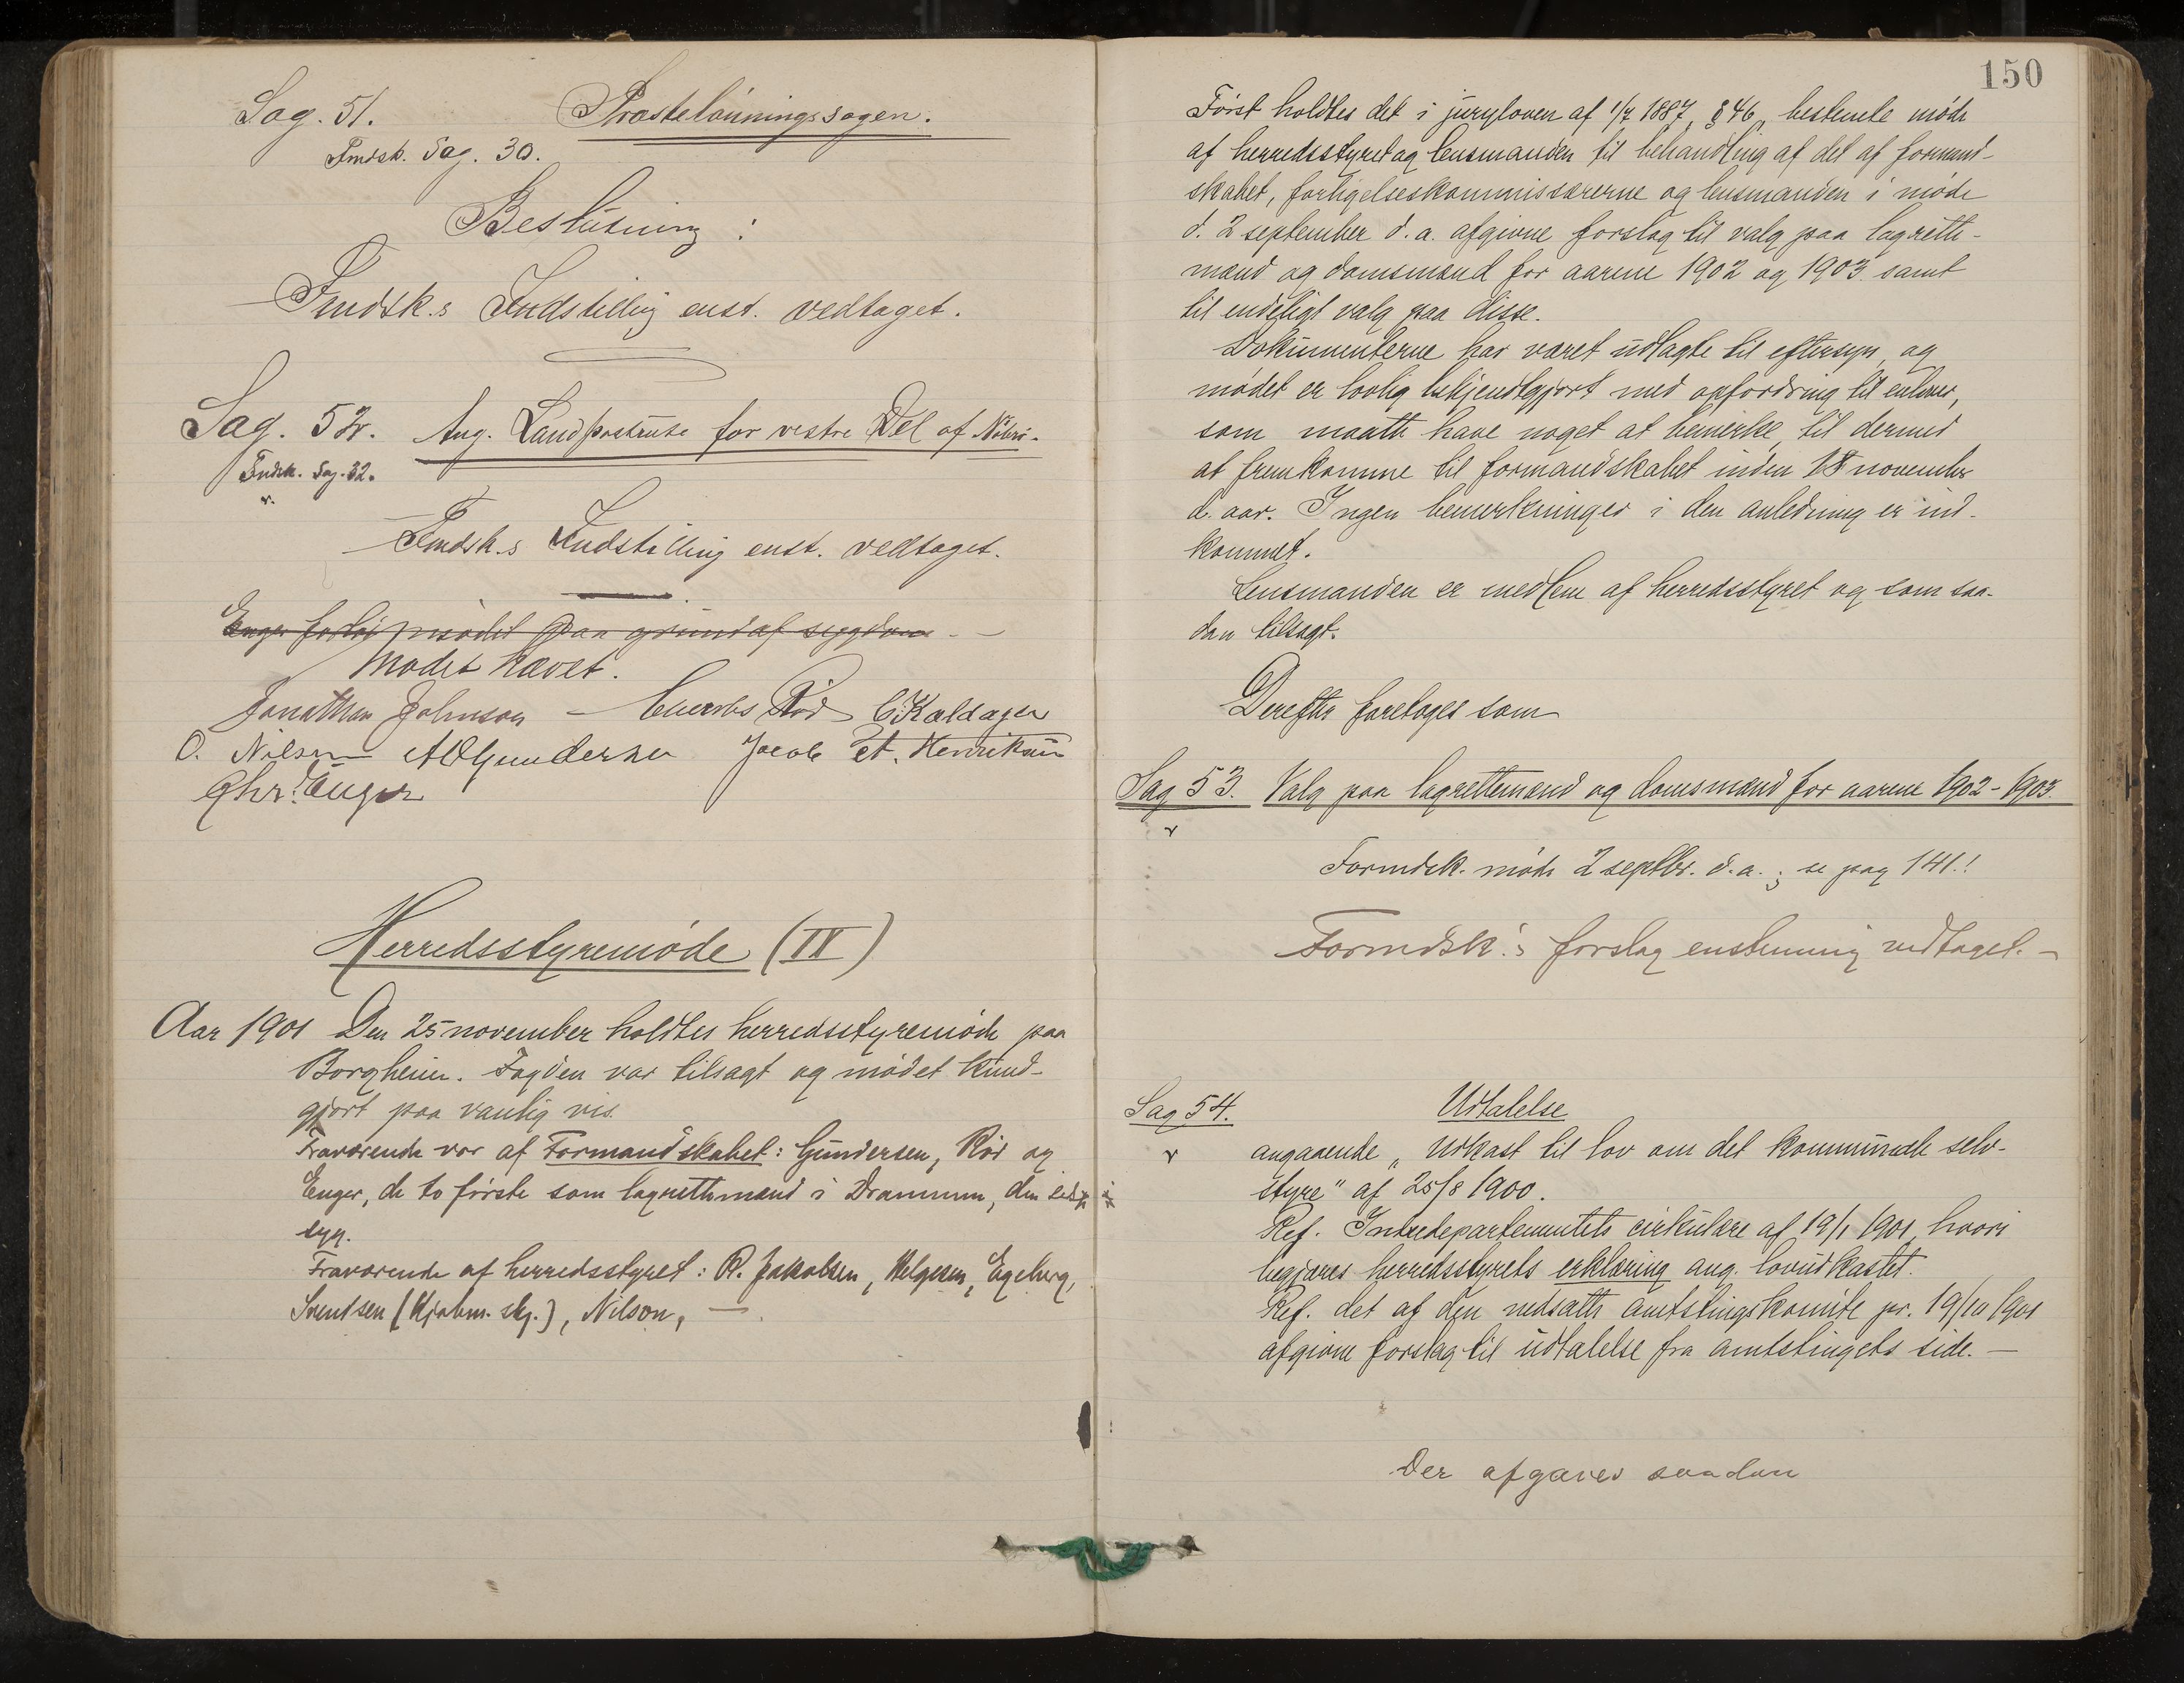 Sag. 51. Præstelönningssagen.
Fmdsk. Sag. 30.
Beslutning :
Fmdsk.s Indstilling enst. vedtaget.
Sag. 52. Ang. Landpostrute for vestre Del af Nøtterö.
Fmdsk. Sag. 32.
Fmdsk.s Indstilling enst. vedtaget.
Enger forlod mødet paa grund af sygdom. —
Mødet hævet.
Jonathan Johnson — Rød C. Kaldager
O. Nilsen A O Gundersen Jacob Et. Henriksen
Chr. Enger
Herredsstyremøde (IV)
Aar 1901 Den 25 november holdtes herredsstyremøde paa
Borgheim. Fogden var tilsagt og mødet kund-
gjort paa vanlig vis.
Fraværende var af Formandskabet: Gundersen, Rød og
Enger, de to første som lagrettemænd i Drammen, den
syg.
Fraværende af herredsstyret: R. Jakobsen, Helgesen, Egeberg,
Svendsen (Hjalm. skj.), Nilson, —
150
Først holdtes det i juryloven af 1/7 1887, § 46, bestemte møde
af herredsstyret og lensmanden til behandling af det af formand-
skabet, forligelseskommissærerne og lensmanden i møde
d. 2 september d. a. afgivne forslag til valg paa lagrette-
mænd og domsmænd for aarene 1902 og 1903 samt
til endeligt valg paa disse.
Dokumenterne har været udlagte til eftersyn, og
mødet er lovlig bekjendtgjort med opfordring til enhver,
som maatte have noget at bemerke, til dermed
at fremkomme til formandskabet inden 18 november
d. aar. Ingen bemerkninger i den anledning er ind-
kommet.
Lensmanden er medlem af herredsstyret og som saa-
dan tilsagt.
Derefter foretoges som
Sag 53. Valg paa lagrettemænd og domsmænd for aarene 1902-1903.
Formdsk. møde 2 septbr. d. a.; se pag 141!
Formdsk.'s forslag enstemmig vedtaget. —
Sag 54. Udtalelse
angaaende „Udkast til lov om det kommunale selv-
styre" af 25/8 1900.
Ref. Indredepartementets cirkulære af 19/1 1901, hvori
begjæres herredsstyrets erklæring ang. lovudkastet.
Ref. det af den nedsatte amtstingskomite pr. 19/10 1901
afgivne forslag til udtalelse fra amtstingets side. —
Der afgaves saadan